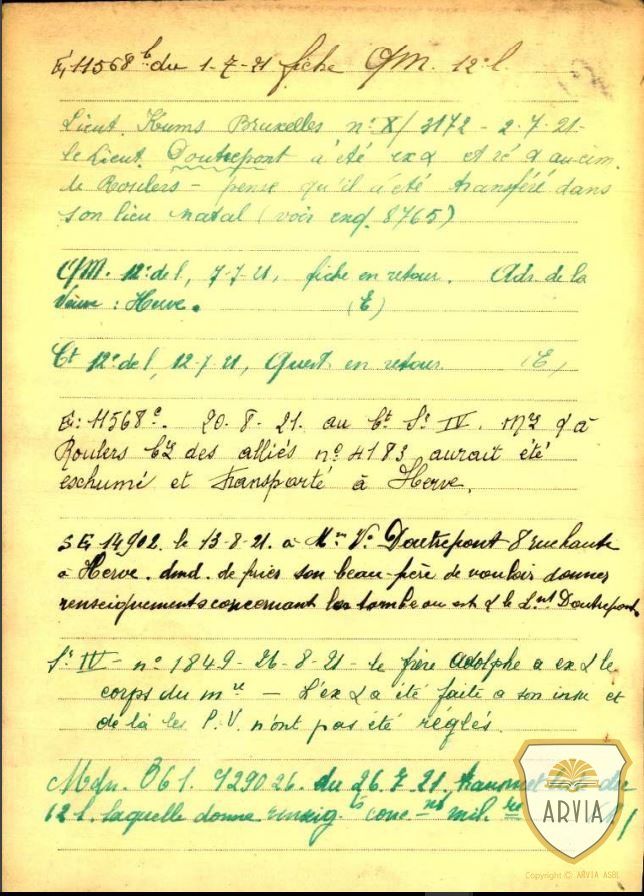 E, 11568 b du 1-7-21 fiche QM. 12e l.
Lieut. Kums Bruxelles n° X/3172 - 2.7.21-
le Lieut. Doutrepont a été ex et ré au cim.
de Roulers - pense qu'il a été transféré dans
son lieu natal (voir enq. 8765)
QM. 12e de l, 7-7-21, fiche en retour. Adr. de la
Veuve : Herve. (E)
Ct 12e de l, 12-7-21, Quest. en retour. (E)
E: 11568 c. 20-8-21. au Ct Sr IV.
Roulers des alliés n° 4183 aurait été
exhumé et transporté à Herve.
SE 14902. le 13-8-21. a Me Ve Doutrepont 8 rue haute
a Herve. dmd. de prier son beau-père de vouloir donner
renseignements concernant la tombe ou est le Lnt Doutrepont.
Sr IV - n° 1849 - 26-8-21 - le frère Adolphe a ex le
corps du - L'ex a été faite a son insu et
de là les P.V. n'ont pas été réglés.
Mdn. 061. 929026. du 26.7.21. transmet du
12 l. laquelle donne renseig. conc mil.
ARVIA
Copyright © ARVIA ASBL